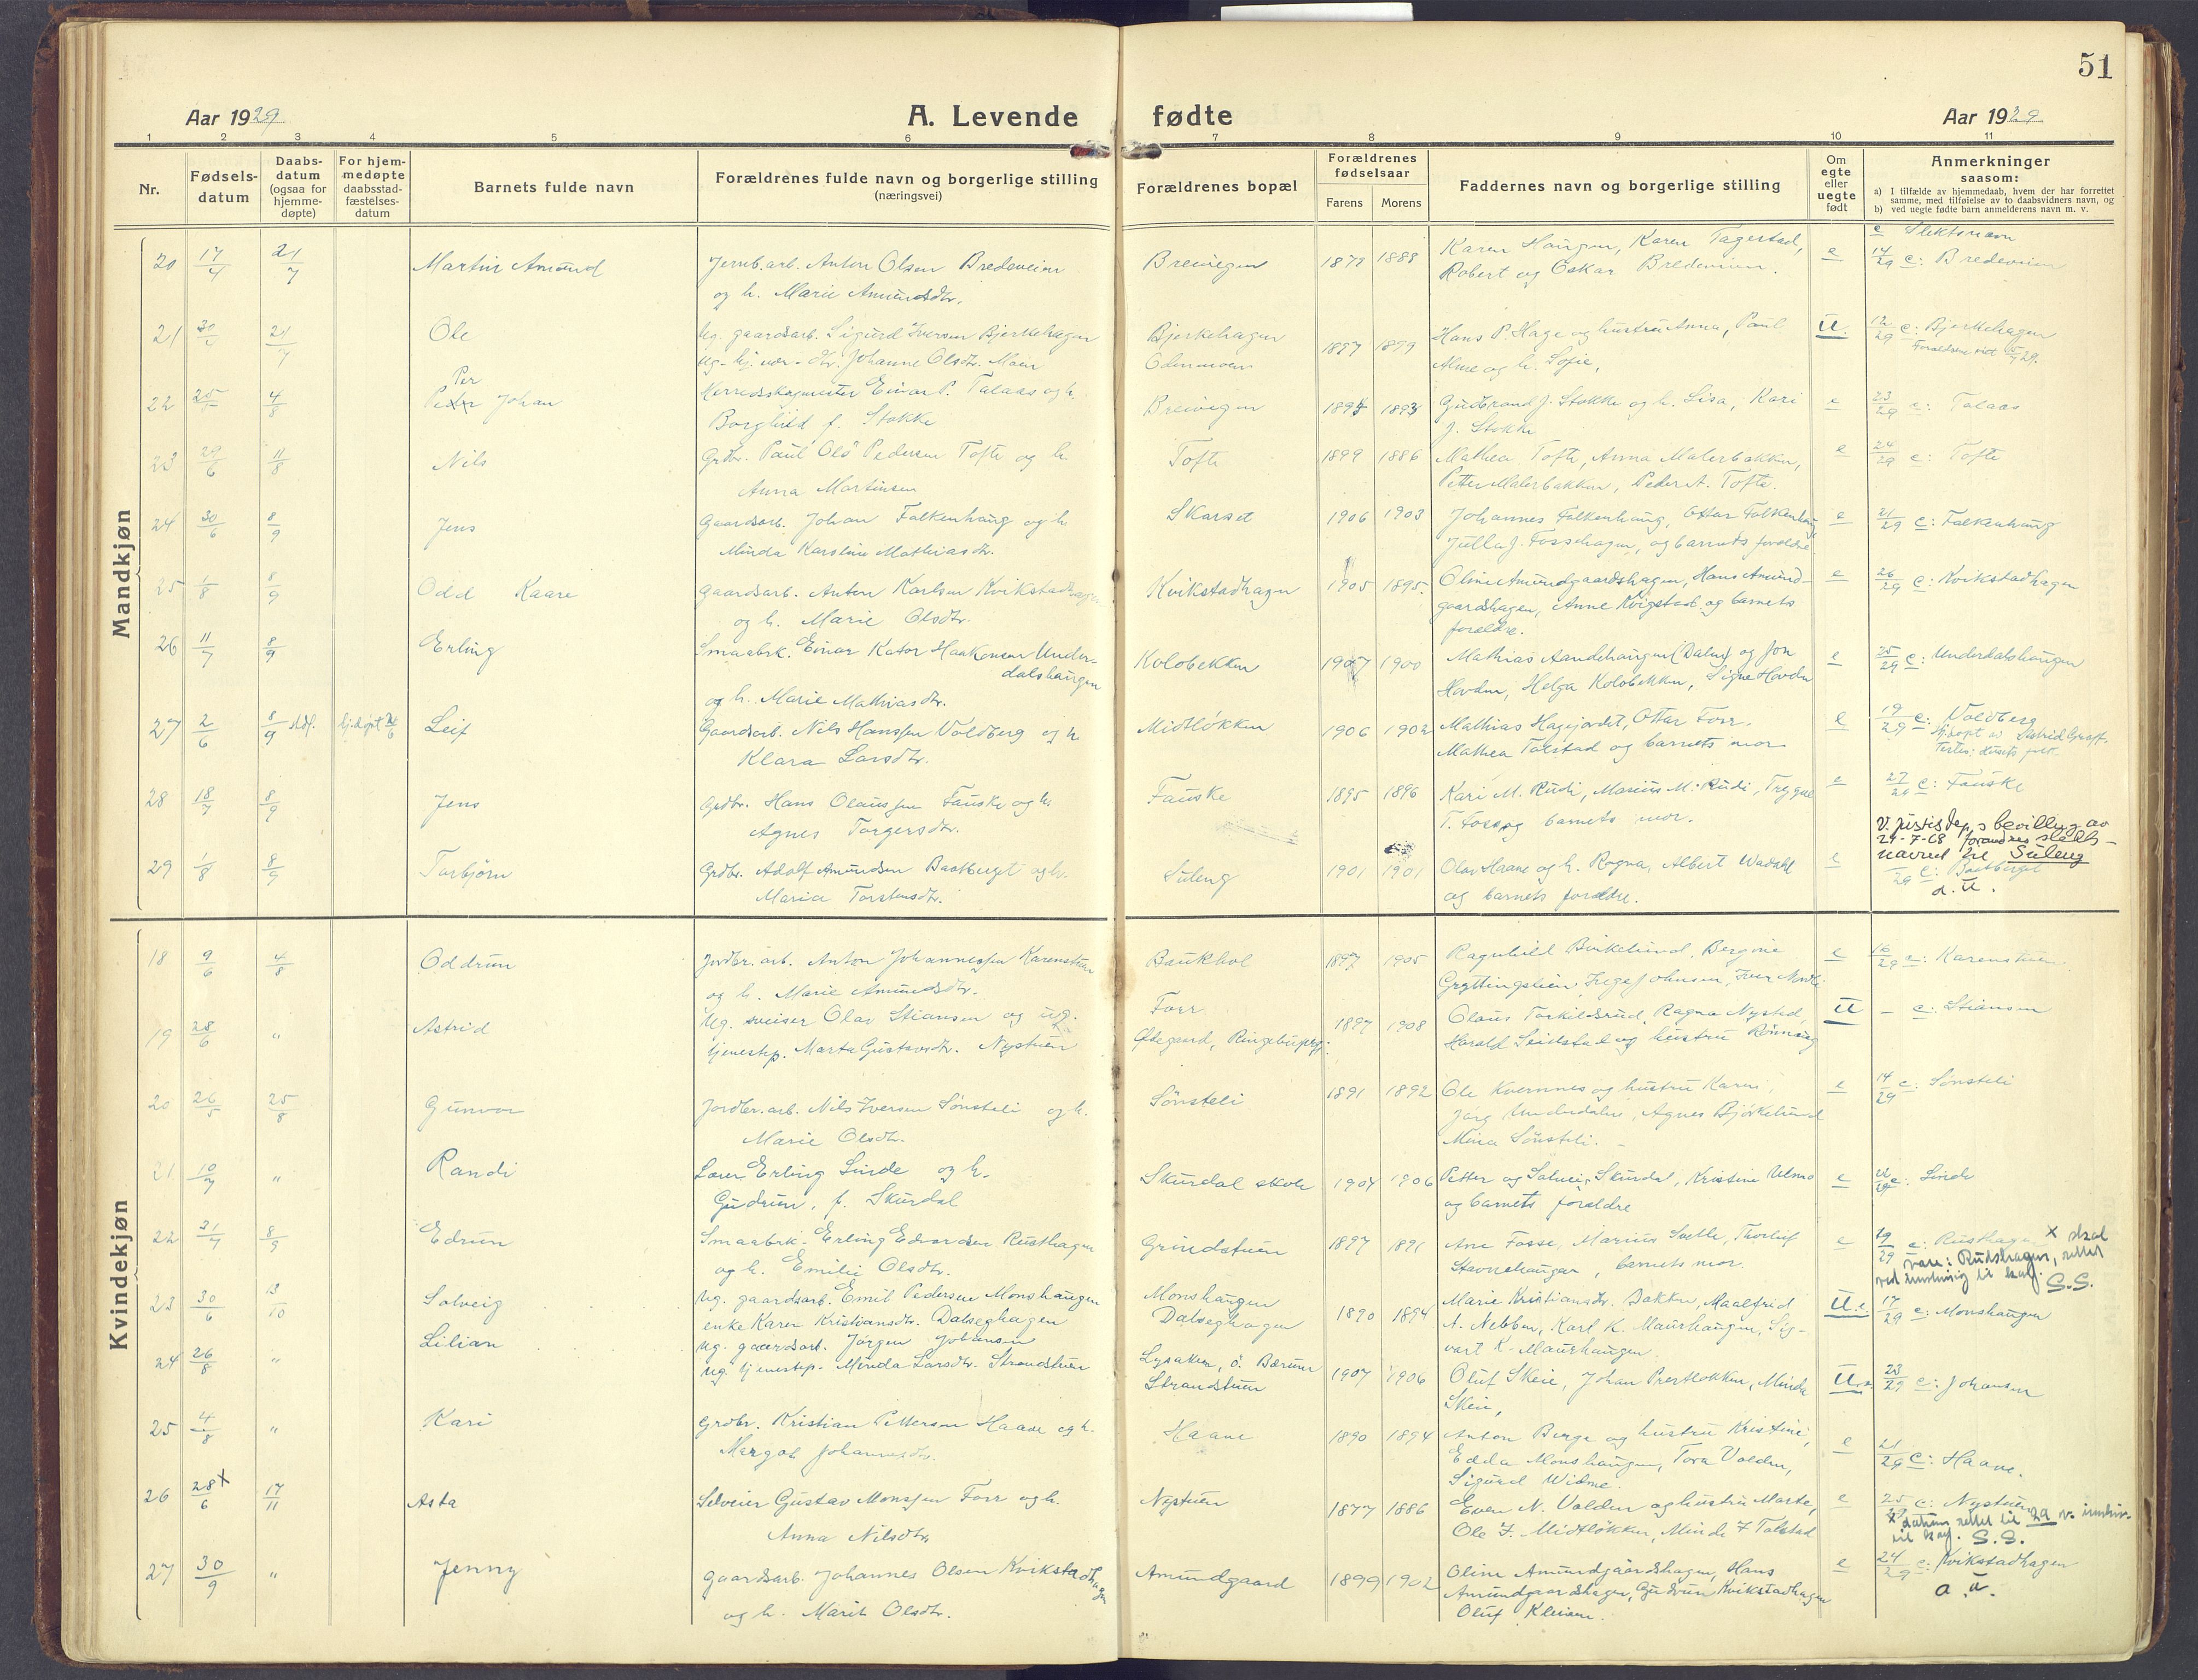 51
Aar 1929
A. Levende fødte
Aar 1929
1 2 3 4 5 6 7 8 9 10 11
Nr.
Fødsels-
datum
Daabs-
datum
(ogsaa for
hjemme-
døpte)
For hjem-
medøpte
daabsstad-
fæstelses-
datum
Barnets fulde navn
Forældrenes fulde navn og borgerlige stilling
(næringsvei)
Forældrenes bopæl
Forældrenes
fødselsaar
Farens Morens
Faddernes navn og borgerlige stilling
Om
egte
eller
uegte
født
Anmerkninger
saasom:
a) I tilfælde av hjemmedaab, hvem der har forrettet
samme, med tilføielse av to daabsvidners navn, og
b) ved uegte fødte barn anmelderens navn m. v.
Mandkjøn
e Slektsnavn
20 17/4 21/7 Martin Amund Jernb.arb. Anton Olsen Bredeveien Breivegen 1878 1888 Karen Haugen, Karen Tagestad, e 14/29 e: Bredeveien
og h. Marie Amundsdtr. Robert og Oskar Bredeveien.
21 21/7 Ole Ug. gaardsarb. Sigurd Iversen Bjerkehagen Bjerkehagen 1897 1899 Hans P. Hage og hustru Anna, Paul U. 12/29 e: Bjerkehagen
Johanne Olsdtr. Moen Odenmoen og h. Sofie,
Per
22 25/5 4/8 Peter Johan Herredsskogmester Einar P. Talaas og h. Breivegen 1894 1893 Gudbrand J. Stokke og h. Lisa, Kari e 23/29 e: Talaas
Borghild f. Stokke J. Stokke
23 29/6 11/8 Nils Grdbr. Paul Olö Pedersen Tofte og h. Tofte 1899 1886 Mathea Tofte, Anna Malerbakken, e 24/29 e: Tofte
Anna Martinsen Petter Malerbakken, Peder A. Tofte.
24 30/6 8/9 Jens Gaardsarb. Johan Falkenhaug og h. Skarset 1906 1903 Johannes Falkenhaug, Ottar Falkenhaug e 21/29 e: Falkenhaug
Minda Karoline Mathiasdtr. Julla J. Fossehagen, og barnets forældre
25 1/8 8/9 Odd Kaare Gaardsarb. Anton Karlsen Kvikstadhagen Kvikstadhagen 1905 1895. Oline Amundgaardshagen, Hans Amund- e 26/29 e: Kvikstadhagen
og h. Marie Olsdtr. gaardshagen, Anne Kvigstad og barnets
forældre.
26 11/7 8/9 Erling Smaabrk. Einar Kator Haakonsen Under- Kolobekken 1907 1900 Mathias Aandehaugen (Dalen) og Jon e 25/29 e: Underdalshaugen
dalshaugen Hovden, Helga Kolobekken, Signe Hovden
og h. Marie Mathiasdtr.
27 2/6 8/9 stdf. hj.døpt Leif Gaardsarb. Nils Hanssen Voldberg og h. Midtløkken 1906 1902 Mathias Hagejordet, Ottar Forr. e 19/29 e: Voldberg
Klara Larsdtr. Mathea Talstad og barnets mor Hj.døpt av
28 18/7 8/9 Jens Grdbr. Hans Olaussen Fauske og h. Fauske 1895 1896 Kari M. Rudi, Marius M. Rudi, Trygve e 27/29 e: Fauske
Agnes Torgersdtr. T. Foss og barnets mor.
V. justisdep.s bevilling av
29-7-68 forandres slekts-
navnet til Suleng
29 1/8 8/9 Torbjørn Grdbr. Adolf Amundsen Baatberget og h. Suleng 1901 1901 Olav Haane og h. Ragna, Albert Wadahl e e: Baatberget
Maria Torstensdtr. og barnets forældre. d. U.
Kvindekjøn
18 9/6 4/8 Oddrun Jordbr.arb. Anton Johannessen Karenstuen Baukhol 1897 1905 Ragnhild Birkelund, Bergine e 16/29 e: Karenstuen
og h. Marie Amundsdtr. Gryttingslien
19 28/6 " Astrid Ug. sveiser Olav Stiansen og ug. Forr 1897 1908 Olaus Torkildsrud, Ragna Nystad, U – e: Stiansen
tjenestep. Marta Gustavsdtr. Nystuen Harald Seielstad og hustru Rønnaug
20 26/5 25/8 Gunvor Jordbr.arb. Nils Iversen Sønsteli og h. Sønsteli 1891 1892 Ole Kvernnes og hustru Karen, e 14/29 e: Sønsteli
Marie Olsdtr. Agnes Bjørkelund
Mina Sønsteli.
21 10/7 " Randi Lærer Erling Linde og h. Skurdal skole 1904 1906 Petter og Solveig Skurdal, Kristine Ulmo e e: Linde
Gudrun, f. Skurdal og barnets forældre
22 31/7 8/9 Edrun Smaabrk. Erling Edvardsen Rusthagen Grindstuen 1897 1891 Ane Fosse, Marius Svelle, Thorleif e 19/29 e: Rusthagen x skal
og h. Emilie Olsdtr. Stavnehaugen, barnets mor. være: Rudshagen, rettet
S.S.
23 30/6 13/10 Solveig Ug. gaardsarb. Emil Pedersen Monshaugen Monshaugen 1890 1894 Marie Kristiansdtr. Bakken, Maalfrid U.e. 17/29 e: Monshaugen
enke Karen Kristiansdtr. Dalseghagen Dalseghagen A. Nebben, Karl K. Maurhaugen, Sig-
vart K. Maurhaugen
24 26/8 " Lilian Ug. gaardsarb. Jörgen Johansen Lysaker, ö. Bærum 1907 1906 Oluf Skeie, Johan Prestløkken, Minda U. 23/29 e: Johansen
Ug. tjenestep. Minda Larsdtr. Strandstuen Strandstuen Skeie,
25 4/8 " Kari Grdbr. Kristian Pettersen Haane og h. Haane 1890 1894 Anton Berge og hustru Kristine, e 21/29 e: Haane.
Margot Johannesdtr. Edda Monshaugen, Tora Volden,
Sigurd Widme.
26 28/6 x 17/11 Asta Selveier Gustav Monssen Forr og h. Nystuen 1877 1886 Even N. Volden og hustru Marte, e 25/29 e: Nystuen
Anna Nilsdtr. Ole J. Midtløkken, Minda J Talstad x datum rettet til 29
S.S.
27 30/9 " Jenny Gaardsarb. Johannes Olsen Kvikstadhagen Amundgaard 1899 1902 Oline Amundgaardshagen, Hans e 24/29 e: Kvikstadhagen
og h. Marit Olsdtr. Amundgaardshagen, Gudrun Kvikstadhagen a. u.
Oluf Kleiven.